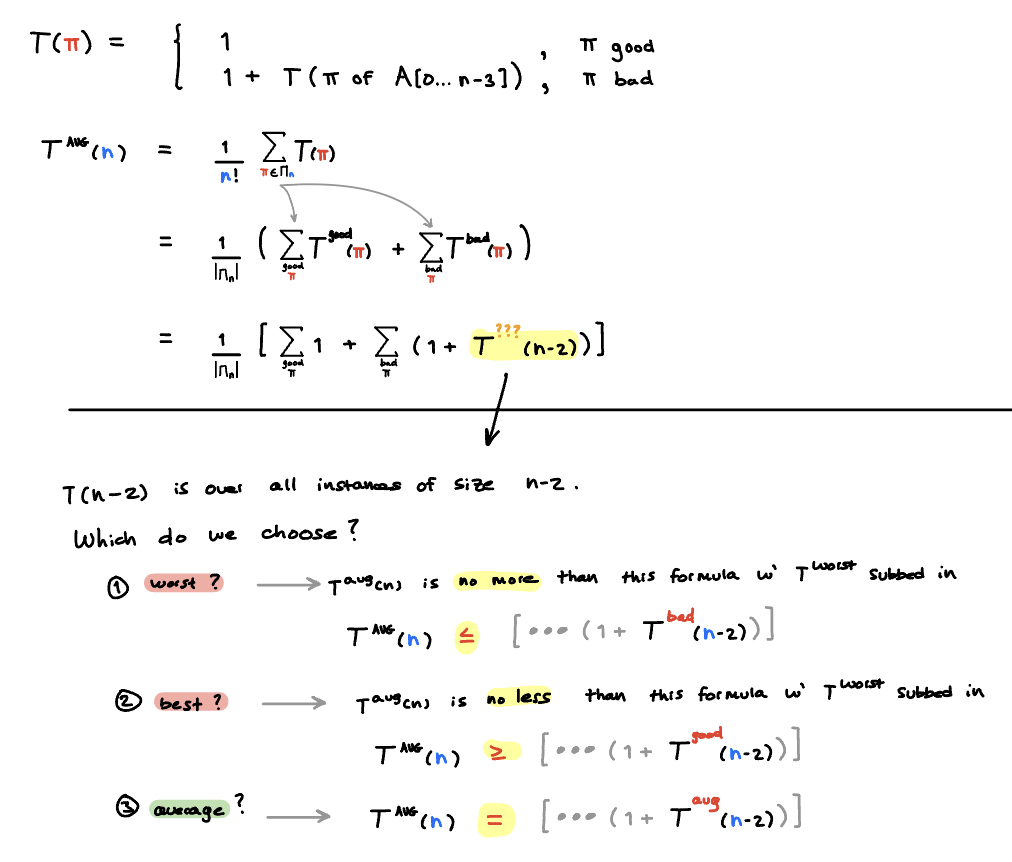 T(π) = { 1 , π good
1 + T(π of A[0...n-3]) , π bad
T^AVG(n) = 1/n! ∑_{π∈Π_n} T(π)
= 1/|Π_n| ( ∑_{good π} T^good(π) + ∑_{bad π} T^bad(π) )
= 1/|Π_n| [ ∑_{good π} 1 + ∑_{bad π} (1 + T^???(n-2)) ]
T(n-2) is over all instances of size n-2.
Which do we choose?
① worst? → T^avg(n) is no more than this formula w' T^worst subbed in
T^AVG(n) ≤ [••• (1 + T^bad(n-2))]
② best? → T^avg(n) is no less than this formula w' T^worst subbed in
T^AVG(n) ≥ [••• (1 + T^good(n-2))]
③ average? → T^AVG(n) = [••• (1 + T^avg(n-2))]